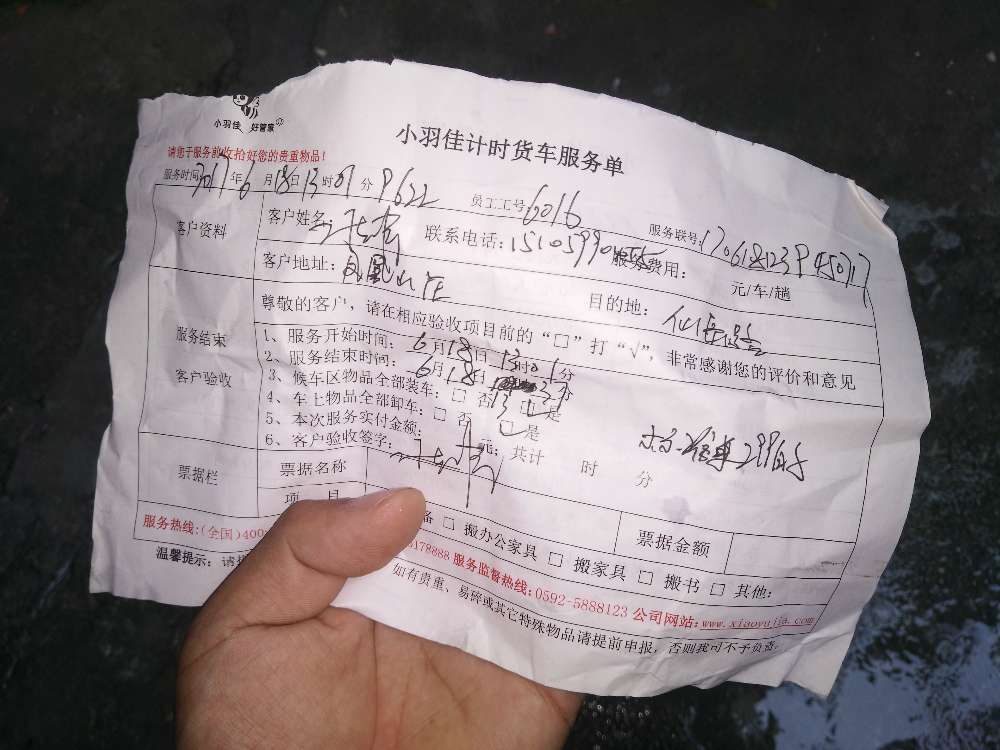 小羽佳 好管家
小羽佳计时货车服务单
请您于服务前收拾好您的贵重物品!
服务时间: 2017年6月18日13时01分 9622 员工工号: 6016 服务联号: 170618123945017
客户资料 客户姓名: 联系电话: 服务费用: 元/车/趟
客户地址: 凤凰山庄 目的地: 仙岳路
尊敬的客户,请在相应验收项目前的“□”打“√”,非常感谢您的评价和意见
服务结束
客户验收
1、服务开始时间: 6月18日13时01分
2、服务结束时间: 6月18日
3、候车区物品全部装车: □ 否 □ 是
4、车上物品全部卸车: □ 否 □ 是
5、本次服务实付金额: 元; 共计 时 分
6、客户验收签字:
票据栏 票据名称 票据金额
项 目 备 □ 搬办公家具 □ 搬家具 □ 搬书 □ 其他:
服务热线:(全国)400 78888 服务监督热线:0592-5888123 公司网站:www.xiaoyujia.com
温馨提示: 如有贵重、易碎或其它特殊物品请提前申报,否则我司不予负责。